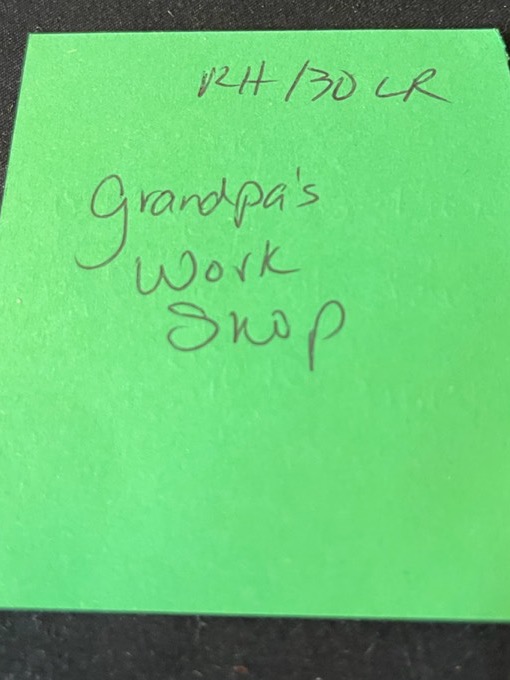 RH/30 LR
Grandpa's
Work
Shop